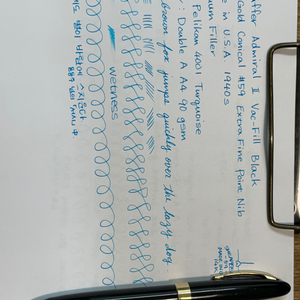 ffer Admiral II Vac-Fill Black
Gold Conical #59 Extra Fine Point Nib
e in U.S.A. 1940s
uum Filler
Pelikan 4001 Turquoise
: Double A A4 90 gsm
brown fox jumps quickly over the lazy dog.
wetness
도 별이 바람에 스치운다
中